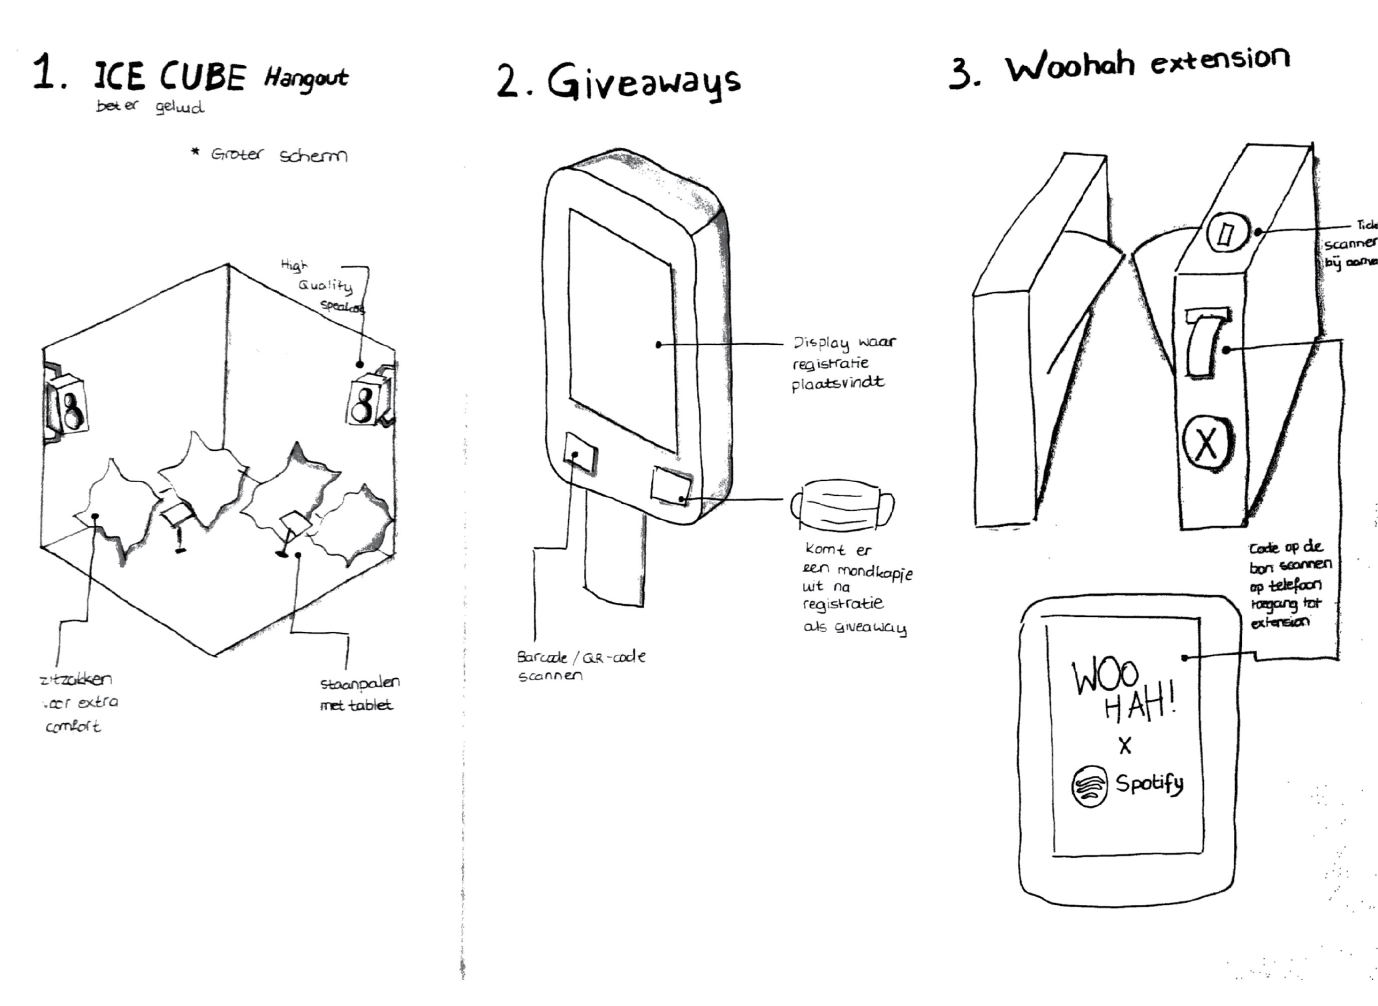 1. ICE CUBE Hangout
beter geluid
* Groter scherm
High
Quality
speakers
zitzakken
voor extra
comfort
staanpalen
met tablet
2. Giveaways
Display waar
registratie
plaatsvindt
komt er
een mondkapje
uit na
registratie
als giveaway
Barcode / QR-code
scannen
3. Woohah extension
Tick
scanner
bij aanv
X
Code op de
bon scannen
op telefoon
toegang tot
extension
WOO
HAH!
X
Spotify